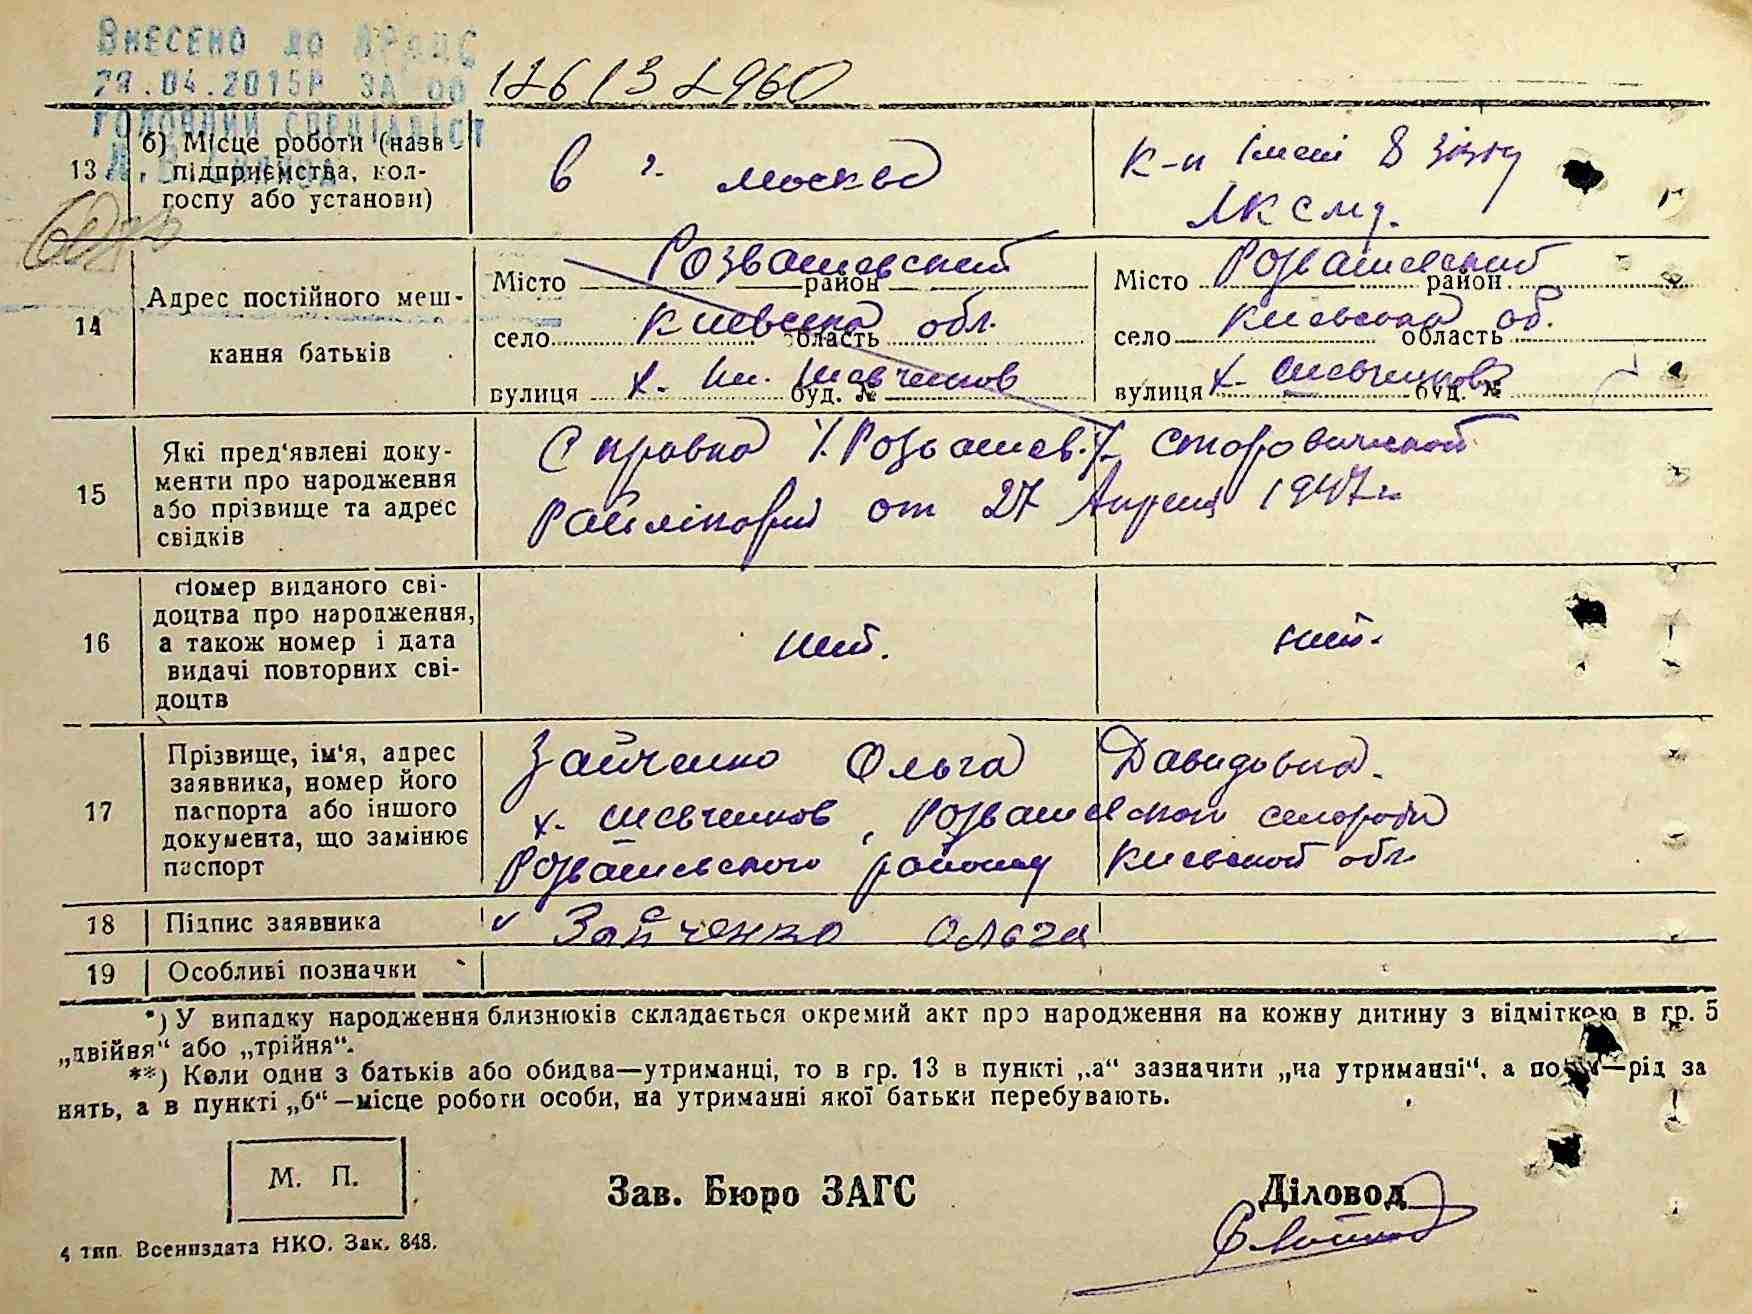 Внесено до
28.04.2015Р ЗА 00
ГОЛОВНИЙ СПЕЦІАЛІСТ
12613 2960
13 б) Місце роботи (назв підприємства, колгоспу або установи)
в г. Москва
К-п імені 8 зізду
ЛКСМУ.
14 Адрес постійного меш-
кання батьків
Розважевский
Місто район
Киевская обл.
село область
х. Им. Шевченков
вулиця буд. №
Розважевский
Місто район
Киевская об.
село область
х. Шевченков
вулиця буд. №
15 Які пред'явлені доку-
менти про народження
або прізвище та адрес
свідків
Справка Розважев.
от 27 Апреля 1947 г.
16 Номер виданого сві-
доцтва про народження,
а також номер і дата
видачі повторних сві-
доцтв
нет. нет.
17 Прізвище, ім'я, адрес
заявника, номер його
паспорта або іншого
документа, що замінює
паспорт
Зайченко Ольга Давидовна.
х. Шевченков, Розважевской селоради
Розважевского району Киевской обл.
18 Підпис заявника
Зайченко Ольга
19 Особливі позначки
*) У випадку народження близнюків складається окремий акт про народження на кожну дитину з відміткою в гр. 5
„двійня“ або „трійня“.
**) Коли один з батьків або обидва—утриманці, то в гр. 13 в пункті „а“ зазначити „на утриманні“, а —рід за
нять, а в пункті „б“—місце роботи особи, на утриманні якої батьки перебувають.
М. П.
Зав. Бюро ЗАГС
Діловод
4 тип. Воениздата НКО. Зак. 848.